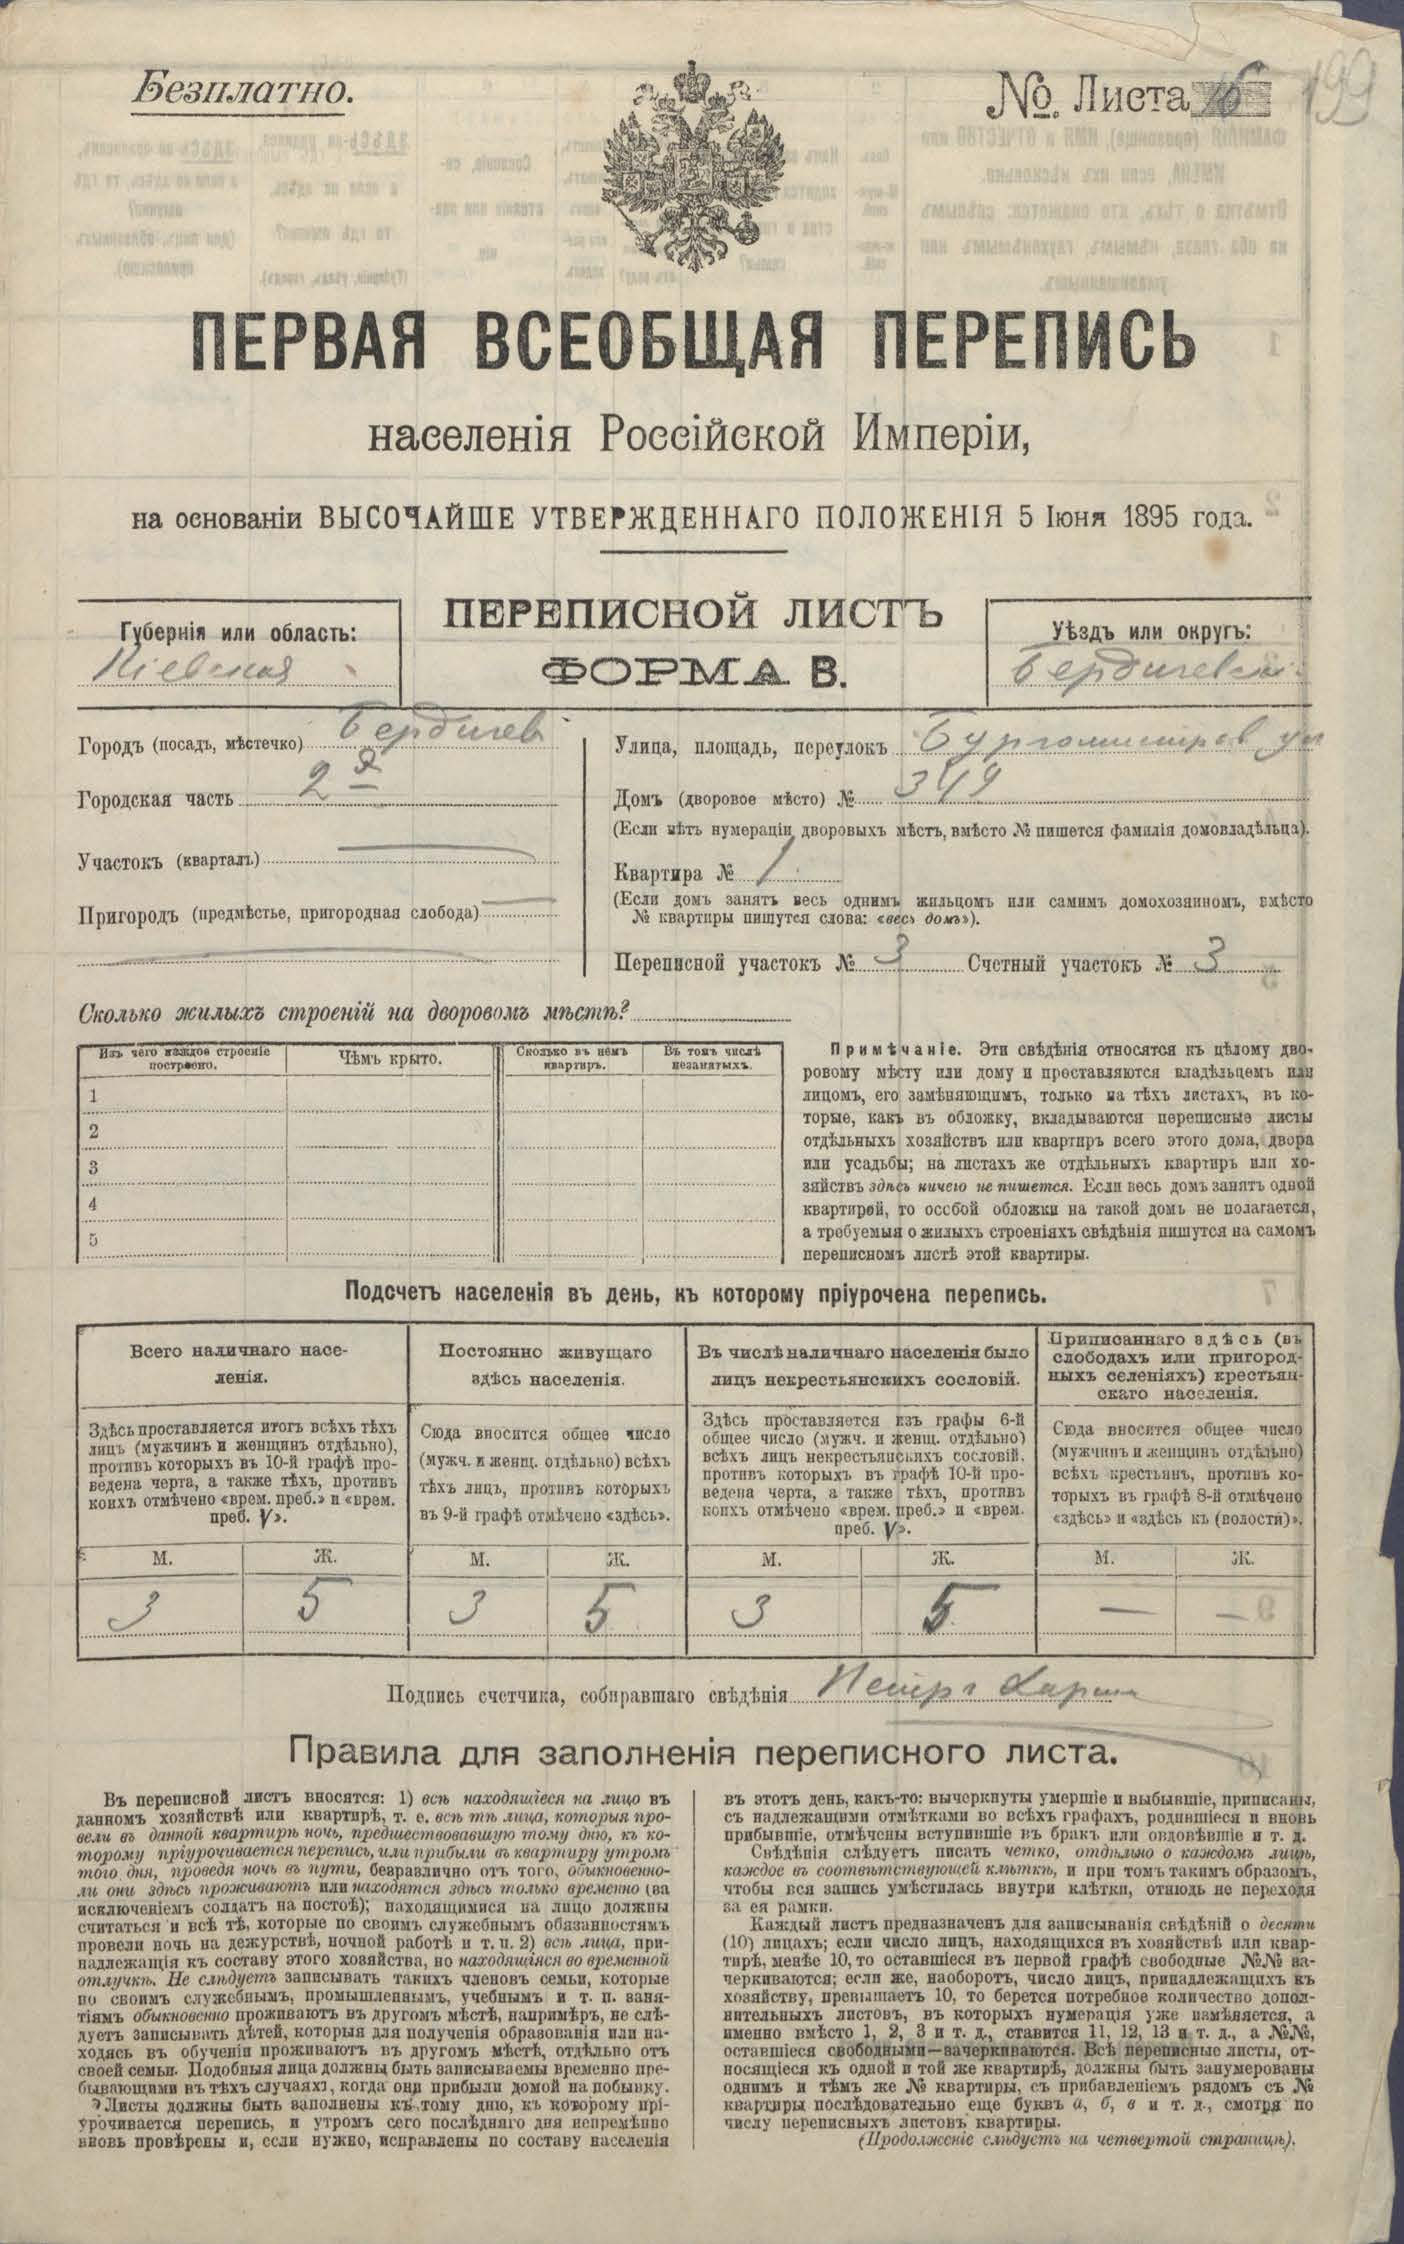 Безплатно.
№ Листа 16
199
ПЕРВАЯ ВСЕОБЩАЯ ПЕРЕПИСЬ
населенія Россійской Имперіи,
на основаніи ВЫСОЧАЙШЕ УТВЕРЖДЕННАГО ПОЛОЖЕНІЯ 5 Іюня 1895 года.
ПЕРЕПИСНОЙ ЛИСТЪ
ФОРМА В.
Губернія или область:
Кіевская
Уѣздъ или округъ:
Бердичевскі
Городъ (посадъ, мѣстечко) Бердичев
Городская часть 2я
Участокъ (кварталъ)
Пригородъ (предмѣстье, пригородная слобода)
Улица, площадь, переулокъ Бургомистров ул
Домъ (дворовое мѣсто) № 349
(Если нѣтъ нумераціи дворовыхъ мѣстъ, вмѣсто № пишется фамилія домовладѣльца).
Квартира № 1
(Если домъ занятъ весь однимъ жильцомъ или самимъ домохозяиномъ, вмѣсто
№ квартиры пишутся слова: «весь домъ»).
Переписной участокъ № 3 Счетный участокъ № 3
Сколько жилыхъ строеній на дворовомъ мѣстѣ?
Изъ чего каждое строеніе
построено.
Чѣмъ крыто.
Сколько въ немъ
квартиръ.
Въ томъ числѣ
незанятыхъ.
1
2
3
4
5
Примѣчаніе. Эти свѣдѣнія относятся къ цѣлому дво-
ровому мѣсту или дому и проставляются владѣльцемъ или
лицомъ, его замѣняющимъ, только на тѣхъ листахъ, въ ко-
торые, какъ въ обложку, вкладываются переписные листы
отдѣльныхъ хозяйствъ или квартиръ всего этого дома, двора
или усадьбы; на листахъ же отдѣльныхъ квартиръ или хо-
зяйствъ здѣсь ничего не пишется. Если весь домъ занятъ одной
квартирой, то особой обложки на такой домъ не полагается,
а требуемыя о жилыхъ строеніяхъ свѣдѣнія пишутся на самомъ
переписномъ листѣ этой квартиры.
Подсчетъ населенія въ день, къ которому пріурочена перепись.
Всего наличнаго насе-
ленія.
Здѣсь проставляется итогъ всѣхъ тѣхъ
лицъ (мужчинъ и женщинъ отдѣльно),
противъ которыхъ въ 10-й графѣ про-
ведена черта, а также тѣхъ, противъ
коихъ отмѣчено «врем. преб.» и «врем.
преб. V».
Постоянно живущаго
здѣсь населенія.
Сюда вносится общее число
(мужч. и женщ. отдѣльно) всѣхъ
тѣхъ лицъ, противъ которыхъ
въ 9-й графѣ отмѣчено «здѣсь».
Въ числѣ наличнаго населенія было
лицъ некрестьянскихъ сословій.
Здѣсь проставляется изъ графы 6-й
общее число (мужч. и женщ. отдѣльно)
всѣхъ лицъ некрестьянскихъ сословій,
противъ которыхъ въ графѣ 10-й про-
ведена черта, а также тѣхъ, противъ
коихъ отмѣчено «врем. преб.» и «врем.
преб. V».
Приписаннаго здѣсь (въ
слободахъ или пригород-
ныхъ селеніяхъ) крестьян-
скаго населенія.
Сюда вносится общее число
(мужчинъ и женщинъ отдѣльно)
всѣхъ крестьянъ, противъ ко-
торыхъ въ графѣ 8-й отмѣчено
«здѣсь» и «здѣсь къ (волости)».
М. Ж. М. Ж. М. Ж. М. Ж.
3 5 3 5 3 5 — —
Подпись счетчика, собиравшаго свѣдѣнія Петръ
Правила для заполненія переписного листа.
Въ переписной листъ вносятся: 1) всѣ находящіеся на лицо въ
данномъ хозяйствѣ или квартирѣ, т. е. всѣ тѣ лица, которыя про-
вели въ данной квартирѣ ночь, предшествовавшую тому дню, къ ко-
торому пріурочивается перепись, или прибыли въ квартиру утромъ
того дня, проведя ночь въ пути, безразлично отъ того, обыкновенно-
ли они здѣсь проживаютъ или находятся здѣсь только временно (за
исключеніемъ солдатъ на постоѣ); находящимися на лицо должны
считаться и всѣ тѣ, которые по своимъ служебнымъ обязанностямъ
провели ночь на дежурствѣ, ночной работѣ и т. п. 2) всѣ лица, при-
надлежащія къ составу этого хозяйства, но находящіяся во временной
отлучкѣ. Не слѣдуетъ записывать такихъ членовъ семьи, которые
по своимъ служебнымъ, промышленнымъ, учебнымъ и т. п. заня-
тіямъ обыкновенно проживаютъ въ другомъ мѣстѣ, напримѣръ, не слѣ-
дуетъ записывать дѣтей, которыя для полученія образованія или на-
ходясь въ обученіи проживаютъ въ другомъ мѣстѣ, отдѣльно отъ
своей семьи. Подобныя лица должны быть записываемы временно пре-
бывающими въ тѣхъ случаяхъ, когда они прибыли домой на побывку.
Листы должны быть заполнены къ тому дню, къ которому прі-
урочивается перепись, и утромъ сего послѣдняго дня непремѣнно
вновь провѣрены и, если нужно, исправлены по составу населенія
въ этотъ день, какъ-то: вычеркнуты умершіе и выбывшіе, приписаны,
съ надлежащими отмѣтками во всѣхъ графахъ, родившіеся и вновь
прибывшіе, отмѣчены вступившіе въ бракъ или овдовѣвшіе и т. д.
Свѣдѣнія слѣдуетъ писать четко, отдѣльно о каждомъ лицѣ,
каждое въ соотвѣтствующей клѣткѣ, и при томъ такимъ образомъ,
чтобы вся запись умѣстилась внутри клѣтки, отнюдь не переходя
за ея рамки.
Каждый листъ предназначенъ для записыванія свѣдѣній о десяти
(10) лицахъ; если число лицъ, находящихся въ хозяйствѣ или квар-
тирѣ, менѣе 10, то оставшіеся въ первой графѣ свободные №№ за-
черкиваются; если же, наоборотъ, число лицъ, принадлежащихъ къ
хозяйству, превышаетъ 10, то берется потребное количество допол-
нительныхъ листовъ, въ которыхъ нумерація уже измѣняется, а
именно вмѣсто 1, 2, 3 и т. д., ставится 11, 12, 13 и т. д., а №№,
оставшіеся свободными—зачеркиваются. Всѣ переписные листы, от-
носящіеся къ одной и той же квартирѣ, должны быть занумерованы
однимъ и тѣмъ же № квартиры, съ прибавленіемъ рядомъ съ №
квартиры послѣдовательно еще буквъ а, б, в и т. д., смотря по
числу переписныхъ листовъ квартиры.
(Продолженіе слѣдуетъ на четвертой страницѣ).